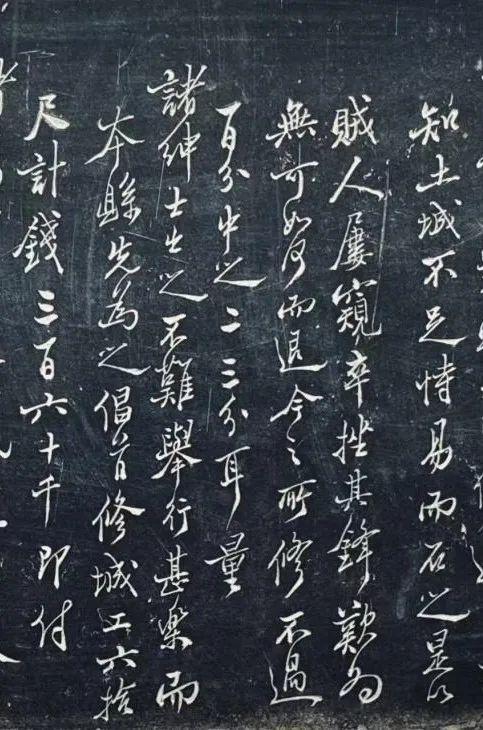 知土城不足恃易而石之是以
賊人屢窺卒挫其鋒歎為
無可如何而退今之所修不過
百分中之二三分耳量
諸紳士出之不難舉行甚樂而
本縣先為之倡首修城工六拾
尺計錢三百六十千即付